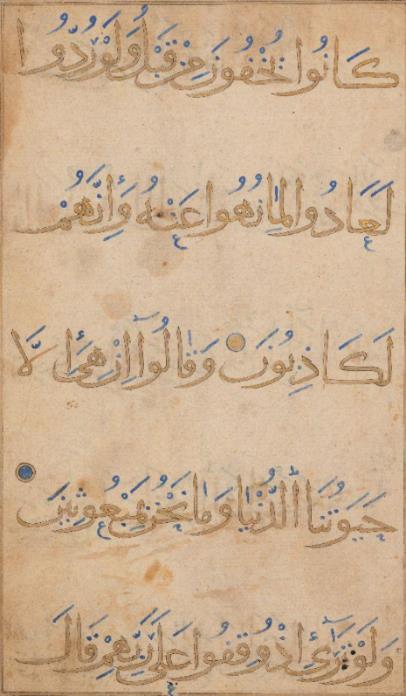 كَانُوا يُخْفُونَ مِنْ قَبْلُ وَلَوْ رُدُّوا
لَعَادُوا لِمَا نُهُوا عَنْهُ وَإِنَّهُمْ
لَكَاذِبُونَ وَقَالُوا إِنْ هِيَ إِلَّا
حَيَوتُنَا الدُّنْيَا وَمَا نَحْنُ بِمَبْعُوثِينَ
وَلَوْ تَرَىٰ إِذْ وُقِفُوا عَلَىٰ رَبِّهِمْ قَالَ